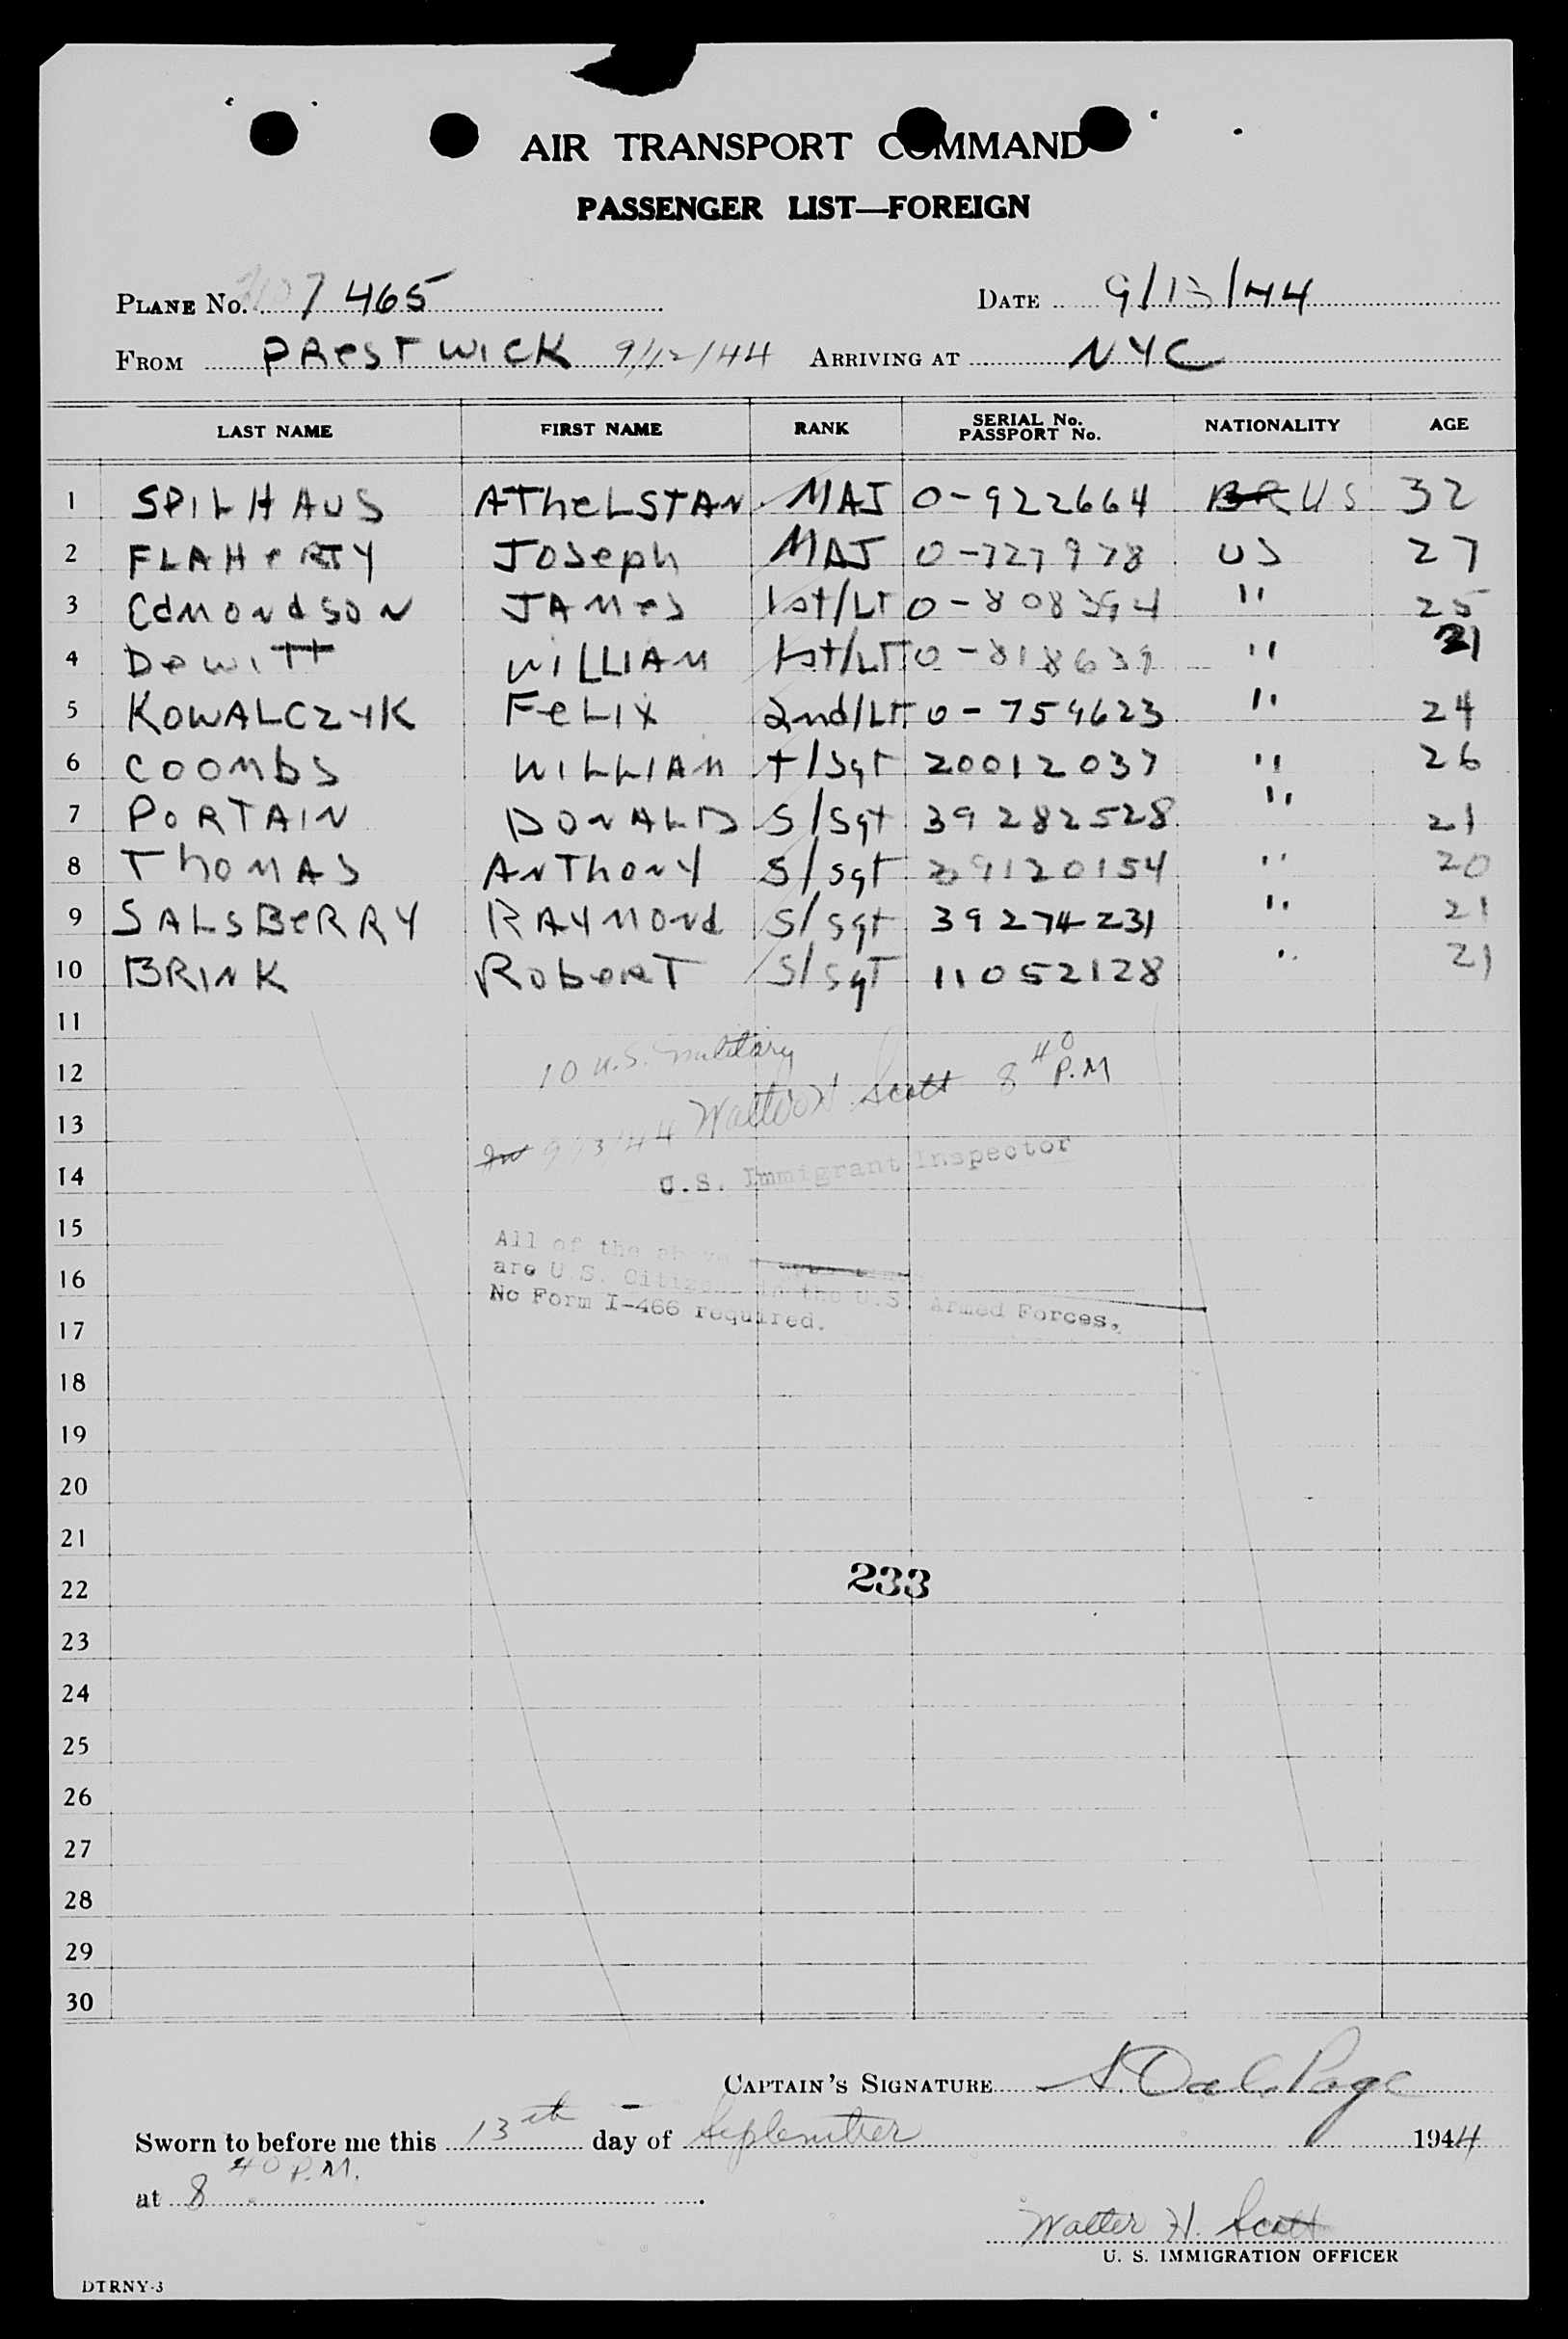 AIR TRANSPORT COMMAND
PASSENGER LIST—FOREIGN
PLANE No. 7465 DATE 9/13/44
FROM PRESTWICK 9/12/44 ARRIVING AT NYC
LAST NAME FIRST NAME RANK SERIAL No. PASSPORT No. NATIONALITY AGE
1 SPILHAUS ATHELSTAN MAJ 0-922664 BR US 32
2 FLAHERTY JOSEPH MAJ 0-727978 US 27
3 EDMONDSON JAMES 1st/LT 0-808394 " 25
4 DEWITT WILLIAM 1st/LT 0-818639 " 21
5 KOWALCZYK FELIX 2nd/LT 0-759623 " 24
6 COOMBS WILLIAM T/Sgt 20012037 " 26
7 PORTAIN DONALD S/Sgt 39282528 " 21
8 THOMAS ANTHONY S/Sgt 39120154 " 20
9 SALSBERRY RAYMOND S/Sgt 39274231 " 21
10 BRINK ROBERT S/SgT 11052128 " 21
11
10 U.S. Military
12
Walter H. Scott 8 40 P.M
13
9/13/44
14
U.S. Immigrant Inspector
15
All of the above
16
are U.S. Citizens in the U.S. Armed Forces.
No Form I-466 required.
17
18
19
20
21
22 233
23
24
25
26
27
28
29
30
CAPTAIN'S SIGNATURE S. Dale Page
Sworn to before me this 13th day of September 1944
at 8 40 P.M.
Walter H. Scott
U. S. IMMIGRATION OFFICER
DTRNY-3